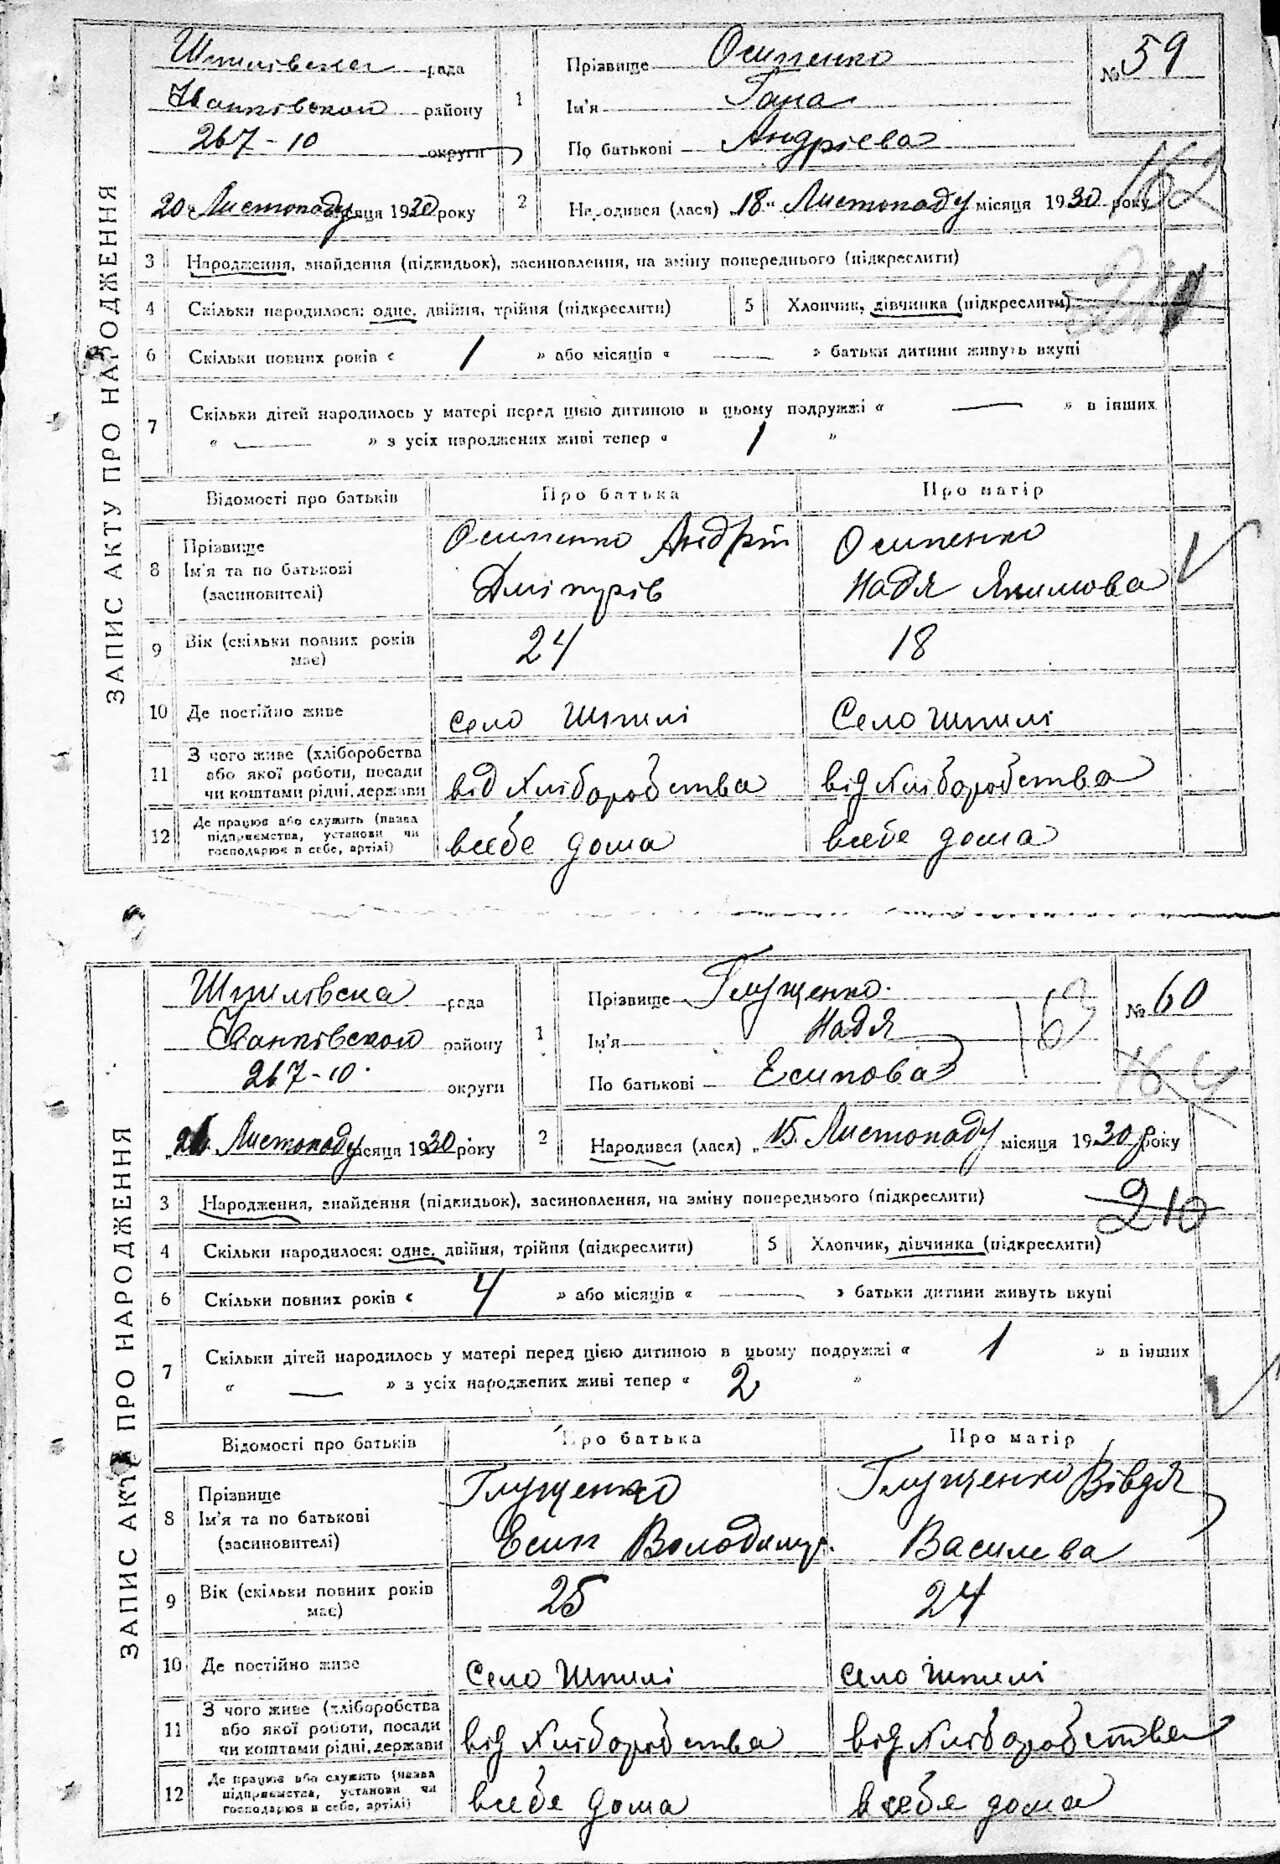 ЗАПИС АКТУ ПРО НАРОДЖЕННЯ
Шпилівска рада
Іванківской району
267-10 округи
20 Листопаду місяця 1930 року
1 Прізвище Осипенко
Ім'я Гана
По батькові Андрієва
№ 59
162
2 Народився (лася) „18" Листопаду місяця 1930 року
3 Народження, знайдення (підкидьок), засиновлення, на зміну попереднього (підкреслити)
4 Скільки народилося: одне, двійня, трійня (підкреслити) 5 Хлопчик, дівчинка (підкреслити)
6 Скільки повних років « 1 » або місяців « — » батьки дитини живуть вкупі
7 Скільки дітей народилось у матері перед цією дитиною в цьому подружжі « — » в інших
« — » з усіх народжених живі тепер « 1 »
Відомості про батьків Про батька Про матір
8 Прізвище Ім'я та по батькові (засиновителі) Осипенко Андрій Дмітрів Осипенко Надя Якимова
9 Вік (скільки повних років має) 24 18
10 Де постійно живе село Шпилі Село Шпилі
11 З чого живе (хліборобства або якої роботи, посади чи коштами рідні, держави від Хліборобства від Хліборобства
12 Де працює або служить (назва підприємства, установи чи господарює в себе, артілі) всебе дома всебе дома
ЗАПИС АКТУ ПРО НАРОДЖЕННЯ
Шпилівска рада
Іванківской району
267-10. округи
Листопаду місяця 1930 року
1 Прізвище Глущенко.
Ім'я Надя
По батькові Есипова
163
№ 60
2 Народився (лася) „15. Листопаду місяця 1930 року
210
3 Народження, знайдення (підкидьок), засиновлення, на зміну попереднього (підкреслити)
4 Скільки народилося: одне, двійня, трійня (підкреслити) 5 Хлопчик, дівчинка (підкреслити)
6 Скільки повних років « 4 » або місяців « — » батьки дитини живуть вкупі
7 Скільки дітей народилось у матері перед цією дитиною в цьому подружжі « 1 » в інших
« — » з усіх народжених живі тепер « 2 »
Відомості про батьків Про батька Про матір
8 Прізвище Ім'я та по батькові (засиновителі) Глущенко Есип Володимр. Глущенко Вівдя Василева
9 Вік (скільки повних років має) 25 24
10 Де постійно живе Село Шпилі село Шпилі
11 З чого живе (хліборобства або якої роботи, посади чи коштами рідні, держави від Хліборобства від Хліборобства
12 Де працює або служить (назва підприємства, установи чи господарює в себе, артілі) всебе дома в себе дома